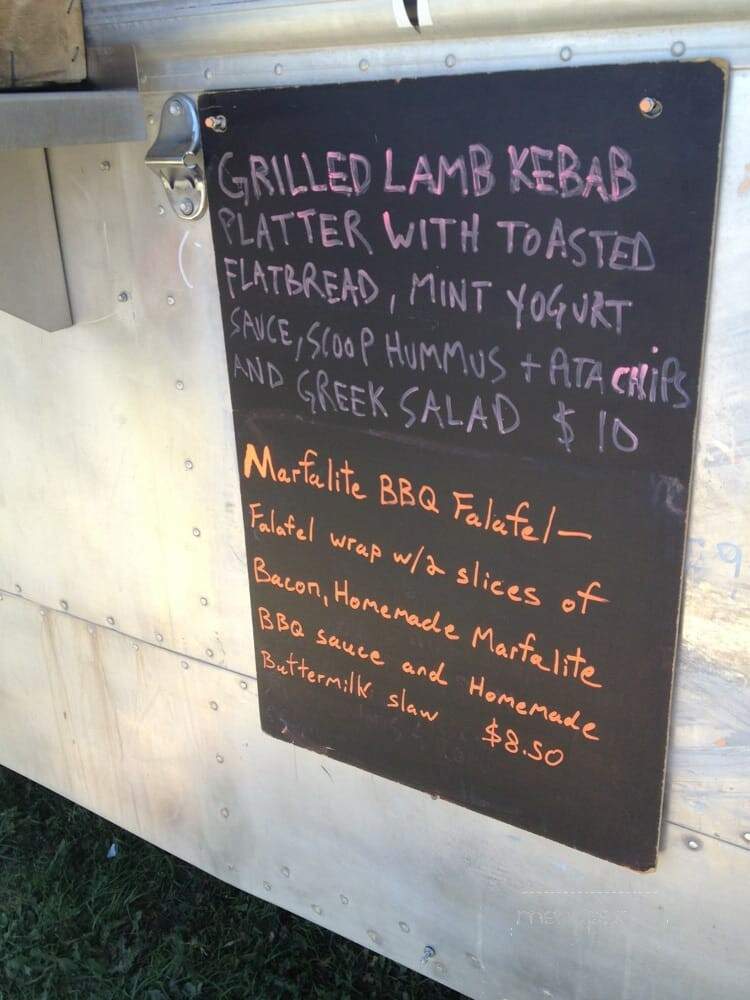 GRILLED LAMB KEBAB
PLATTER WITH TOASTED
FLATBREAD, MINT YOGURT
SAUCE, SCOOP HUMMUS + PITA CHIPS
AND GREEK SALAD $10
Marfalite BBQ Falafel—
Falafel wrap w/2 slices of
Bacon, Homemade Marfalite
BBQ sauce and Homemade
Buttermilk slaw $8.50